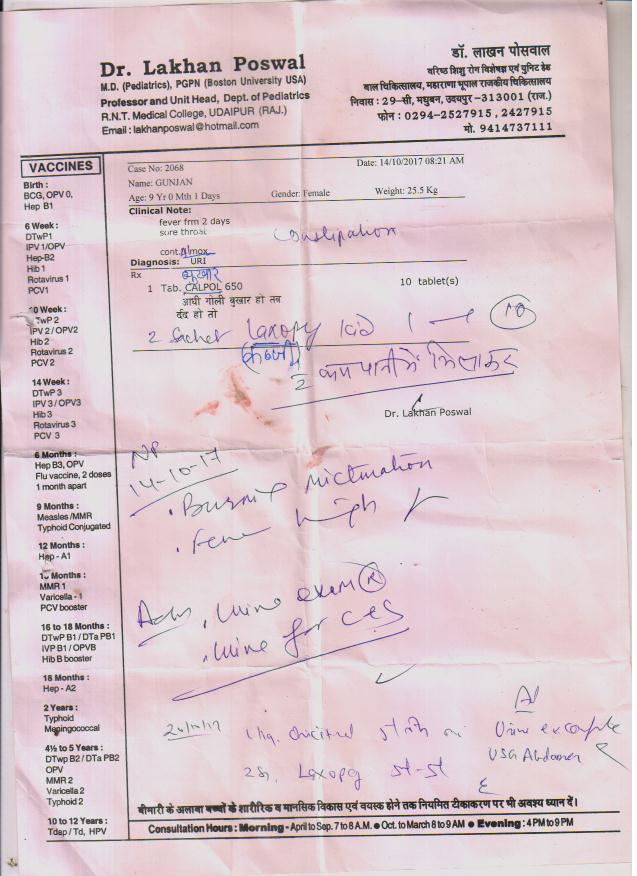 Dr. Lakhan Poswal
M.D. (Pediatrics), PGPN (Boston University USA)
Professor and Unit Head, Dept. of Pediatrics
R.N.T. Medical College, UDAIPUR (RAJ.)
Email : lakhanposwal@hotmail.com
डॉ. लाखन पोसवाल
वरिष्ठ शिशु रोग विशेषज्ञ एवं युनिट हेड
बाल चिकित्सालय, महाराणा भूपाल राजकीय चिकित्सालय
निवास : 29-सी, मधुबन, उदयपुर -313001 (राज.)
फोन : 0294-2527915 , 2427915
मो. 9414737111
VACCINES
Birth :
BCG, OPV 0,
Hep B1
6 Week :
DTwP1
IPV 1/OPV
Hep-B2
Hib 1
Rotavirus 1
PCV1
10 Week :
TwP 2
IPV 2 / OPV2
Hib 2
Rotavirus 2
PCV 2
14 Week :
DTwP 3
IPV 3 / OPV3
Hib 3
Rotavirus 3
PCV 3
6 Months :
Hep B3, OPV
Flu vaccine, 2 doses
1 month apart
9 Months :
Measles /MMR
Typhoid Conjugated
12 Months :
Hep - A1
Months :
MMR 1
Varicella - 1
PCV booster
16 to 18 Months :
DTwP B1 / DTa PB1
IVP B1 / OPVB
Hib B booster
18 Months :
Hep - A2
2 Years :
Typhoid
Meningococcal
4½ to 5 Years :
DTwp B2 / DTa PB2
OPV
MMR 2
Varicella 2
Typhoid 2
10 to 12 Years :
Tdap / Td, HPV
Case No: 2068
Date: 14/10/2017 08:21 AM
Name: GUNJAN
Age: 9 Yr 0 Mth 1 Days
Gender: Female
Weight: 25.5 Kg
Clinical Note:
fever frm 2 days
sure throat
Constipation
cont.Almox
Diagnosis: URI
Rx
बुखार
1 Tab. CALPOL 650
10 tablet(s)
आधी गोली बुखार हो तब
दर्द हो तो
2 Sachet Laxopy kid 1 10
(कब्जी)
1/2 कप पानी में मिलाकर
Dr. Lakhan Poswal
14-10-17
. Burning micturation
. Fever high
Adv . Urine exam R
. Urine for C&S
Urine
USG Abdomen
Laxopeg
बीमारी के अलावा बच्चों के शारीरिक व मानसिक विकास एवं वयस्क होने तक नियमित टीकाकरण पर भी अवश्य ध्यान दें।
Consultation Hours : Morning - April to Sep. 7 to 8 A.M. ● Oct. to March 8 to 9 AM ● Evening : 4 PM to 9 PM